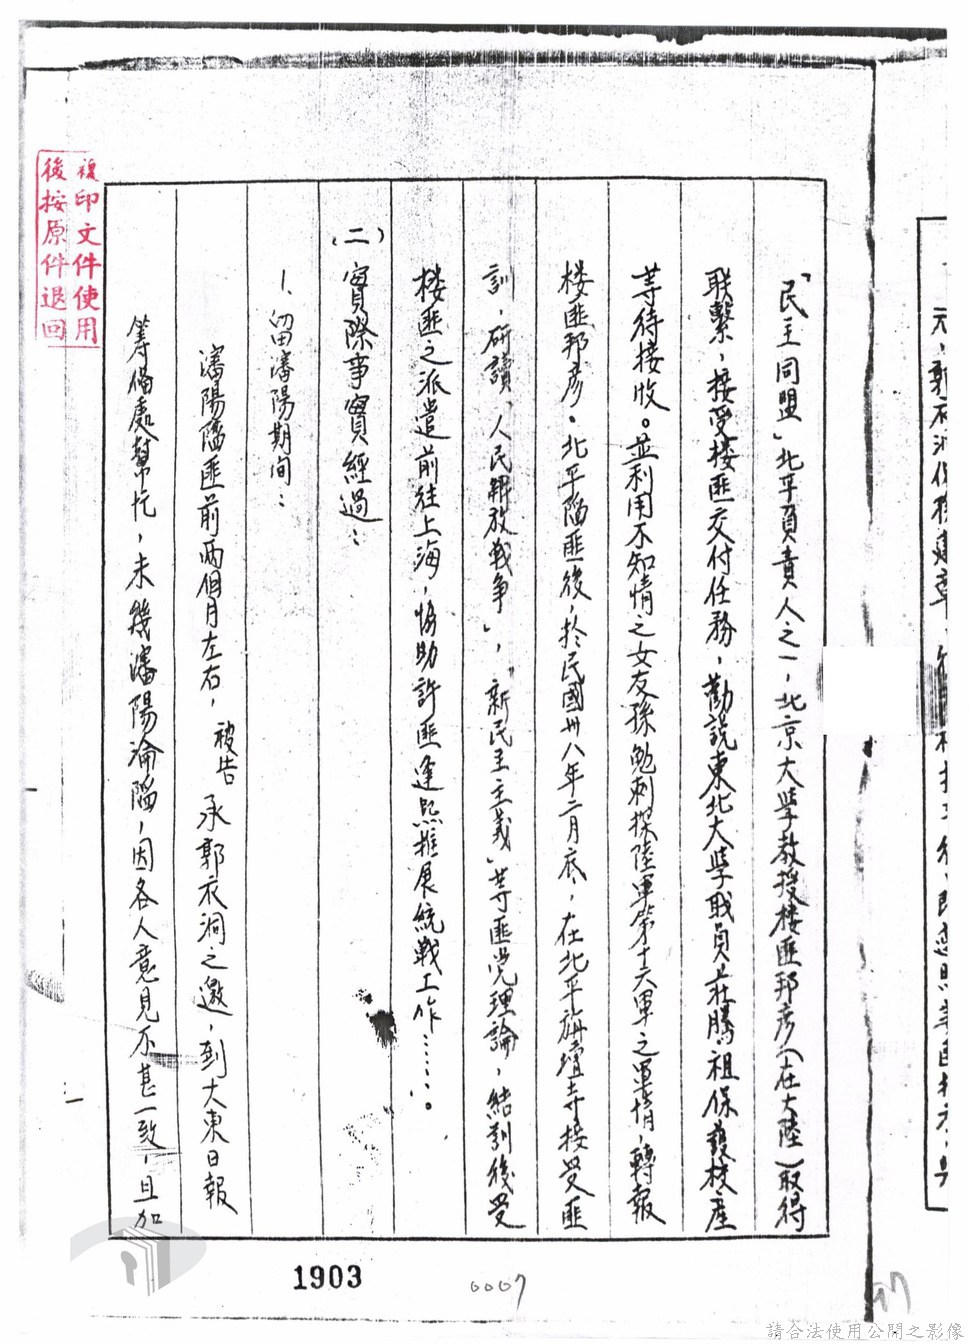 「民主同盟」北平負責人之一，北京大學教授樓匪邦彥（在大陸）取得
聯繫，接受樓匪交付任務，勸說東北大學職員莊騰祖保護校產
等待接收。並利用不知情之女友孫勉刺探陸軍第十六軍之軍情，轉報
樓匪邦彥。北平陷匪後，於民國卅八年二月底，在北平旃壇寺接受匪
訓，研讀「人民解放戰爭」，「新民主主義」等匪党理論，結訓後受
樓匪之派遣前往上海，協助許匪逢熙推展統戰工作……。
(二)實際事實經過：
1. 留瀋陽期间：
瀋陽陷匪前兩個月左右，被告承郭衣洞之邀，到大東日報
籌備處幫忙，未幾瀋陽淪陷，因各人意見不甚一致，且加
複印文件使用
後按原件退回
1903
0007
請合法使用公開之影像